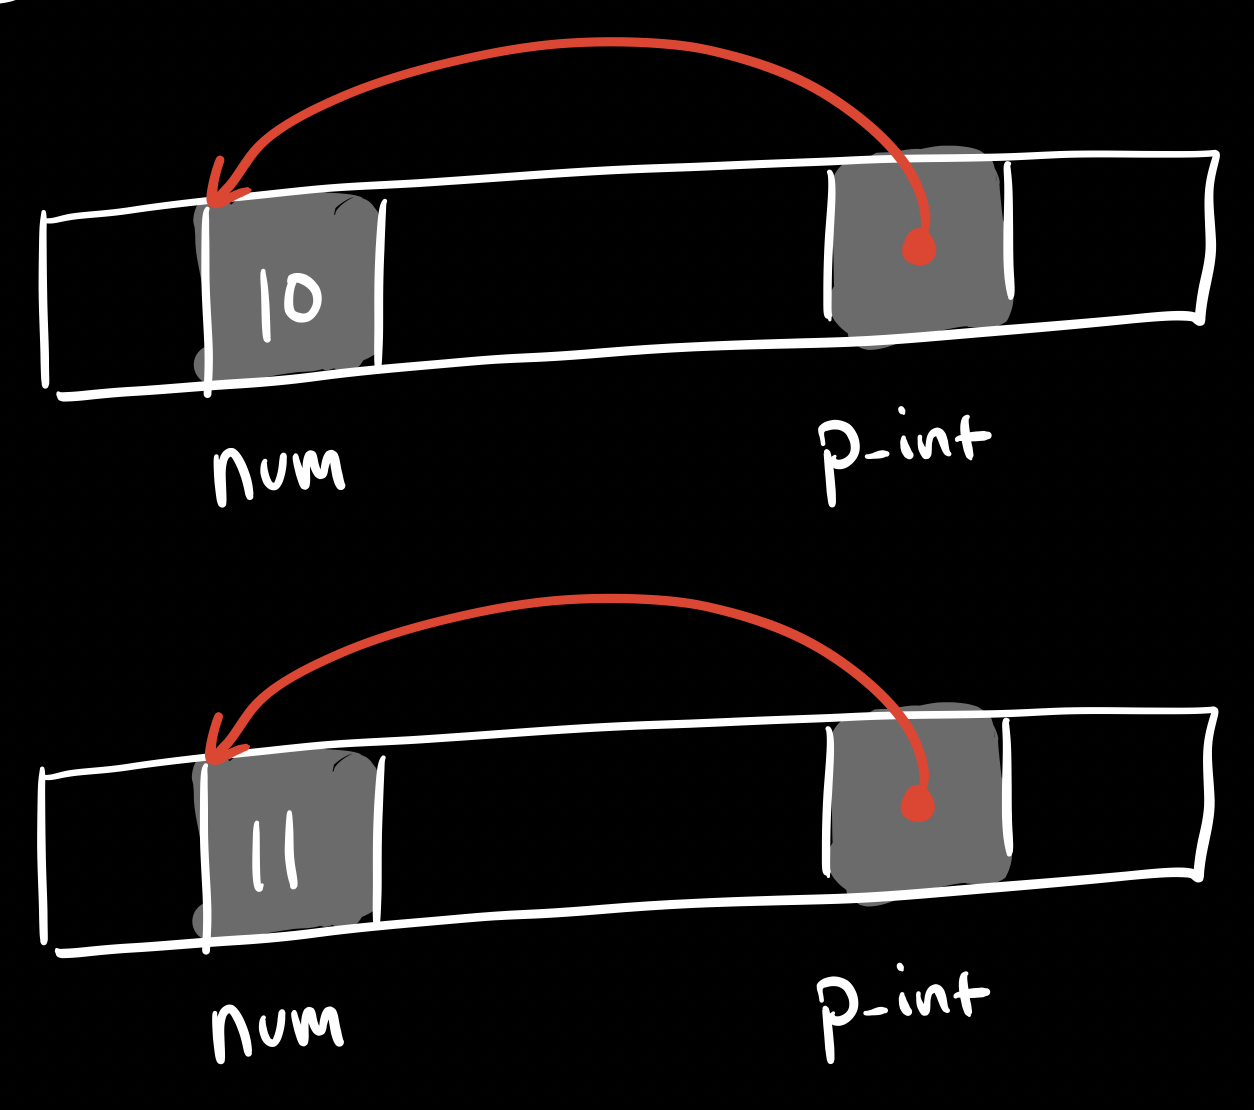 10
num p_int
11
num p_int